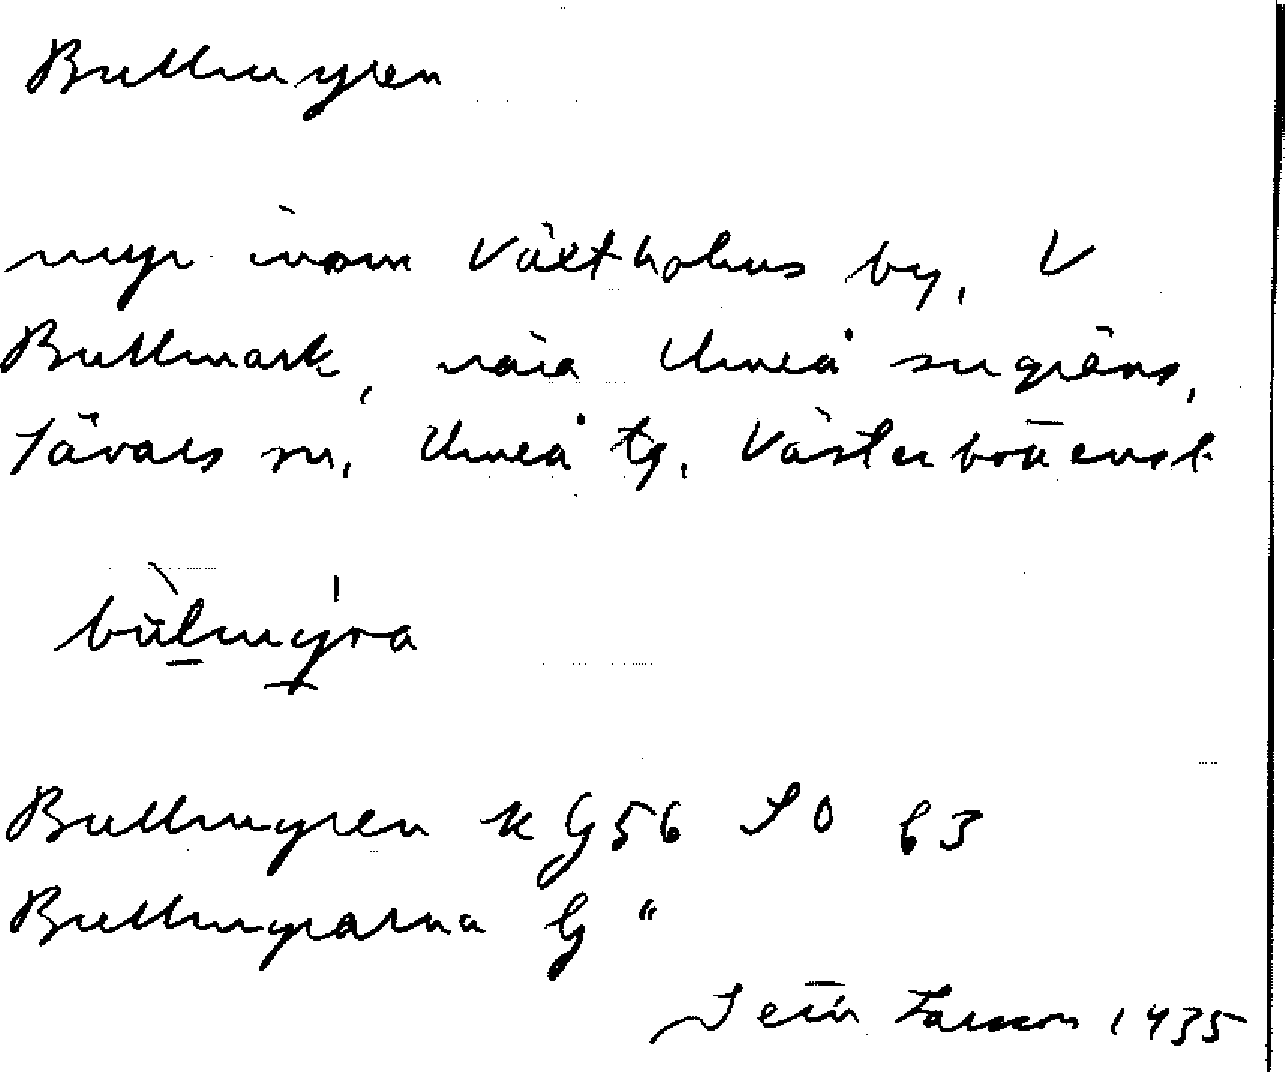 Bullmyren
myr inom Västholms by, V
Bullmark, nära Umeå sn gräns,
Sävars sn, Umeå tg, Västerbottens l.
bùlmy̍ra
Bullmyren k G 56 SO 63
Bullmyrarna G "
Seth Larsson 1935